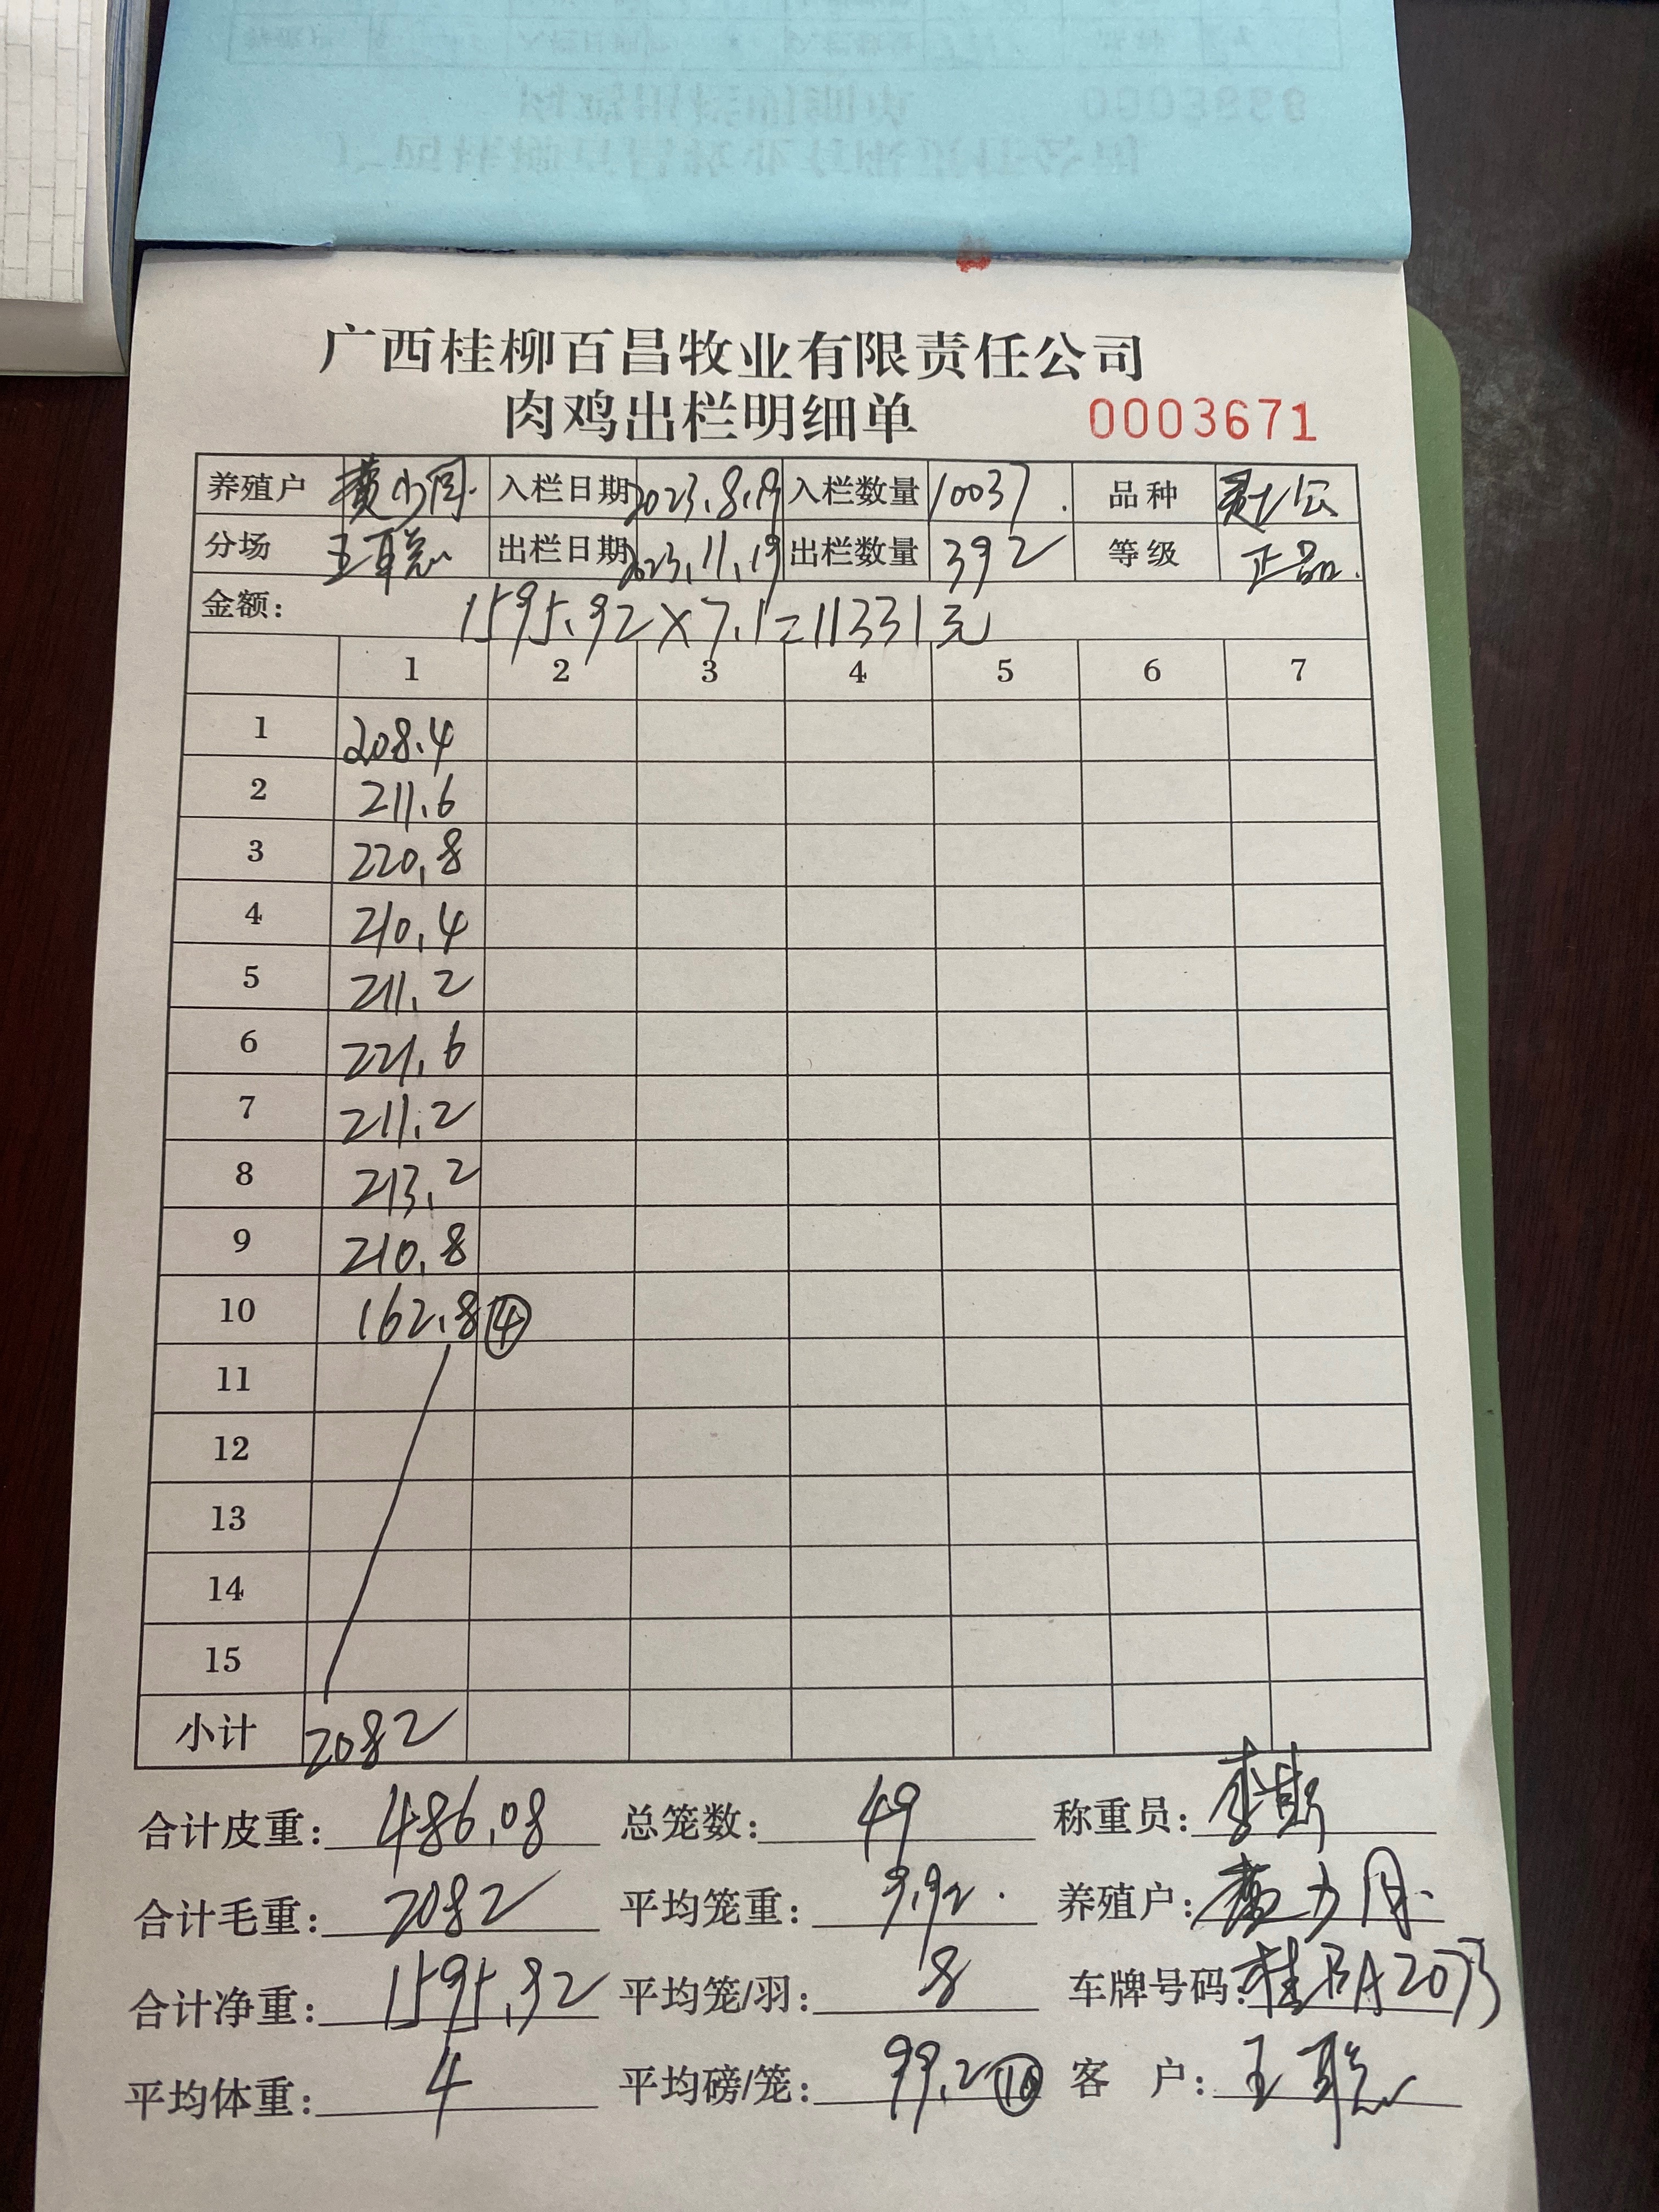 广西桂柳百昌牧业有限责任公司
肉鸡出栏明细单 0003671
养殖户 黄 入栏日期 2023.8.19 入栏数量 10037. 品种 公
分场 王聪 出栏日期 2023.11.19 出栏数量 392 等级 正品.
金额: 1595.92×7.1=11331元
1 2 3 4 5 6 7
1 208.4
2 211.6
3 220.8
4 210.4
5 211.2
6 221.6
7 211.2
8 213.2
9 210.8
10 162.8 ④
11
12
13
14
15
小计 2082
合计皮重: 486.08 总笼数: 49 称重员: 李
合计毛重: 2082 平均笼重: 9.92. 养殖户: 黄
合计净重: 1595.92 平均笼/羽: 8 车牌号码: 桂BA2073
平均体重: 4 平均磅/笼: 99.2 ⑩ 客 户: 王聪